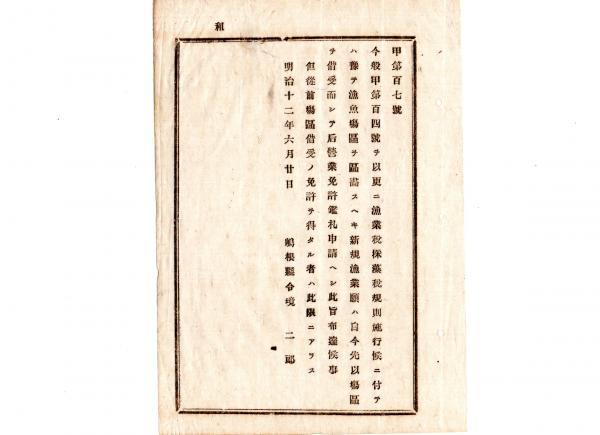 租
甲第百七號
今般甲第百四號ヲ以更ニ漁業税採藻税規則施行候ニ付テ
ハ豫テ漁魚塲區ヲ區畫スヘキ新規漁業願ハ自今先以塲區
ヲ借受而シテ后營業免許鑑札申請ヘシ此旨布達候事
但從前塲區借受ノ免許ヲ得タル者ハ此限ニアラス
明治十二年六月廿日
島根縣令境二郎